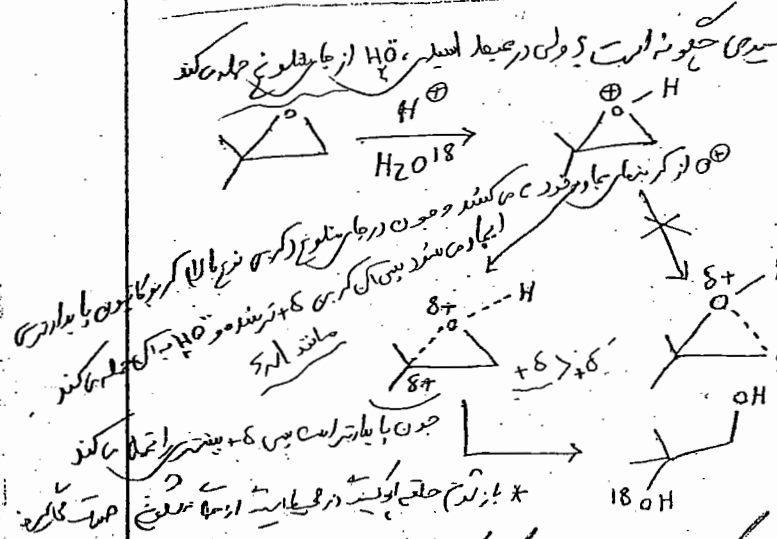 چگونه است؟ ولی در محیط اسیدی، H₂Ö از جای شلوغ حمله می‌کند
H⊕
H₂O18
O
⊕
O H
O⊕ از کربن‌های مجاور خود e می‌کشد و چون در جای شلوغ (کربن نوع بالا) کربوکاتیون پایدارتری
ایجاد می‌شود پس آن کربن δ+ تر شده و H₂Ö به آن حمله می‌کند
مانند
δ+
O H
δ+
+δ > +δ′
δ+
O
چون پایدارتر است پس δ+ بیشتری را تحمل می‌کند
OH
18 OH
* باز شدن حلقه در محیط از جای شلوغ صورت